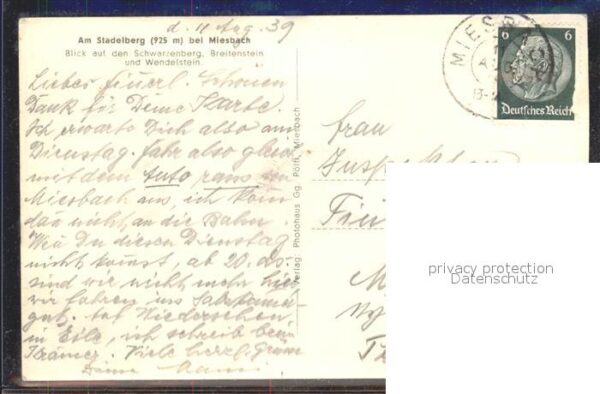 d. 11 Aug. 39
Am Stadelberg (925 m) bei Miesbach
Blick auf den Schwarzenberg, Breitenstein
und Wendelstein.
Liebes Schönen
Dank für Deine Karte.
Ich erwarte Dich also am
Dienstag. fahr also gleich
mit dem Auto raus von
Miesbach aus, ich kom
da nicht an die Bahn.
Wen Du diesen Dienstag
nicht komst, ab 20. ds.
sind wir nicht mehr hier
wir fahren ins Salzkamer
gut. Auf Wiedersehen
in Eile, ich schreib beim
Krämer. Viele herzl. Grüsse
Deine
Verlag: Photohaus Gg. Pöltl, Miesbach
MIESBA
6 6
Deutsches Reich
Frau
privacy protection
Datenschutz